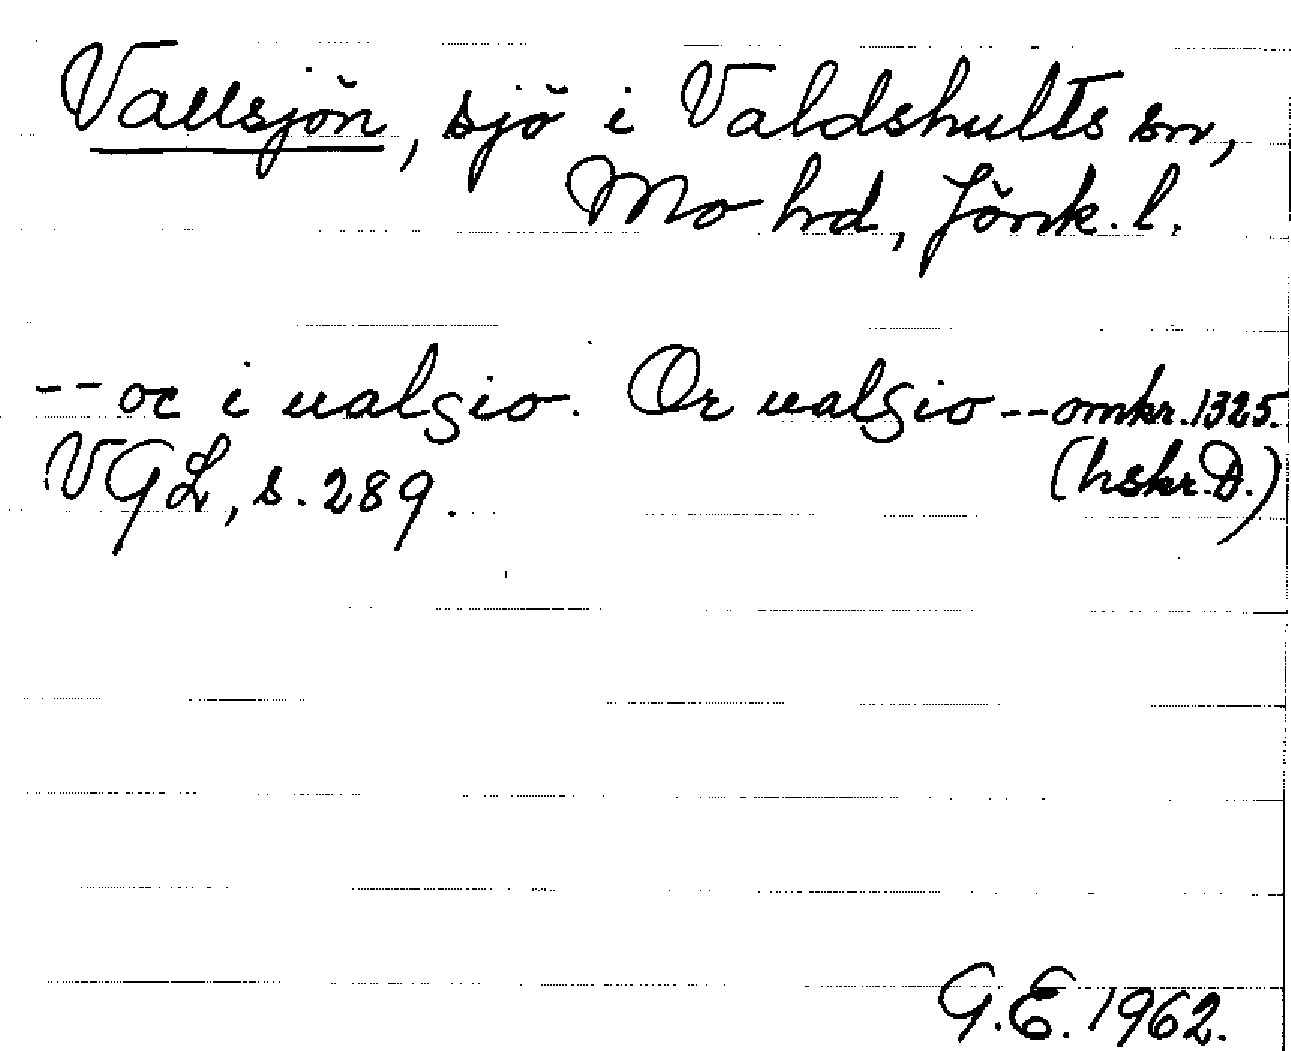 Vallsjön, sjö i Valdshults sn,
Mo hd, Jönk. l.
-- oc i ualsio. Or ualsio -- omkr. 1325.
VGL, s. 289. (hskr. D.)
G.E. 1962.